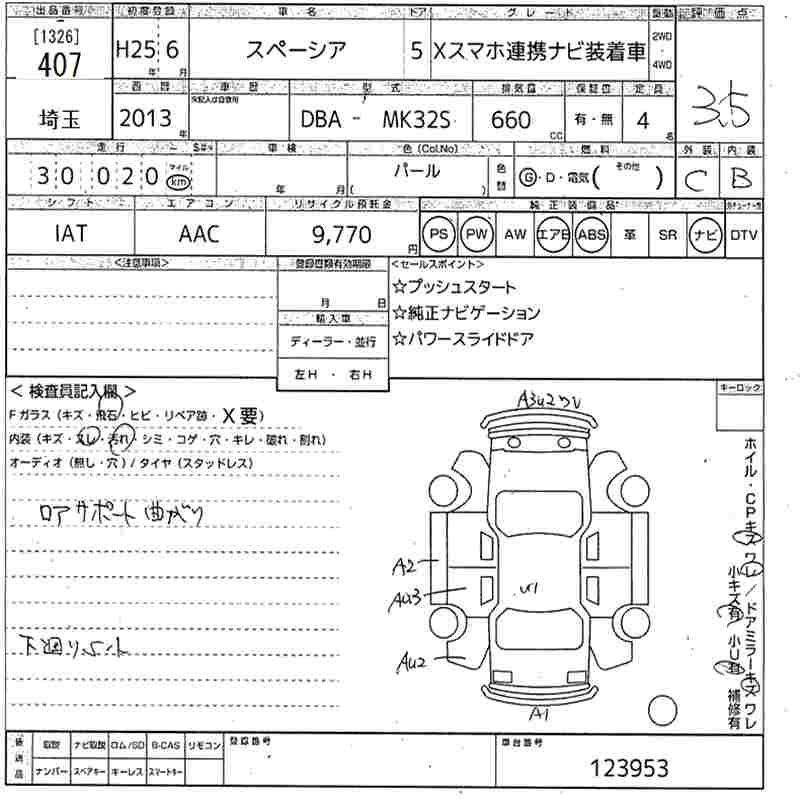 出品番号 初度登録 車名 ドア グレード 駆動 評価点
[1326]
407 H25 年 6 月 スペーシア 5 Xスマホ連携ナビ装着車 2WD・4WD 3.5
西暦 車歴 型式 排気量 保証書 定員
埼玉 2013 年 DBA - MK32S 660 CC 有・無 4 名
走行 車検 色(Col.No) 燃料 外装 内装
30 020 マイル km 年 月 パール ( ) 色替 G・D・電気( その他 ) C B
シフト エアコン リサイクル預託金 純正装備品
IAT AAC 9,770 円 PS PW AW エアB ABS 革 SR ナビ DTV
<注意事項> 登録書類有効期限 <セールスポイント>
月 日
☆プッシュスタート
☆純正ナビゲーション
☆パワースライドドア
輸入車
ディーラー・並行
左H ・ 右H
< 検査員記入欄 > キーロック
Fガラス (キズ・飛石・ヒビ・リペア跡・X要)
内装 (キズ・スレ・汚れ・シミ・コゲ・穴・キレ・破れ・割れ)
オーディオ (無し・穴) / タイヤ (スタッドレス)
ロアサポート曲がり
下廻りサビ
A2
AU3
AU2
U1
A1
ホイル・CPキズ ワレ / ドアミラーキズ ワレ
小キズ有 小U有 補修有
後送品 取説 ナビ取説 ロム/SD B-CAS リモコン 登録番号 車台番号
ナンバー スペアキー キーレス スマートキー 123953